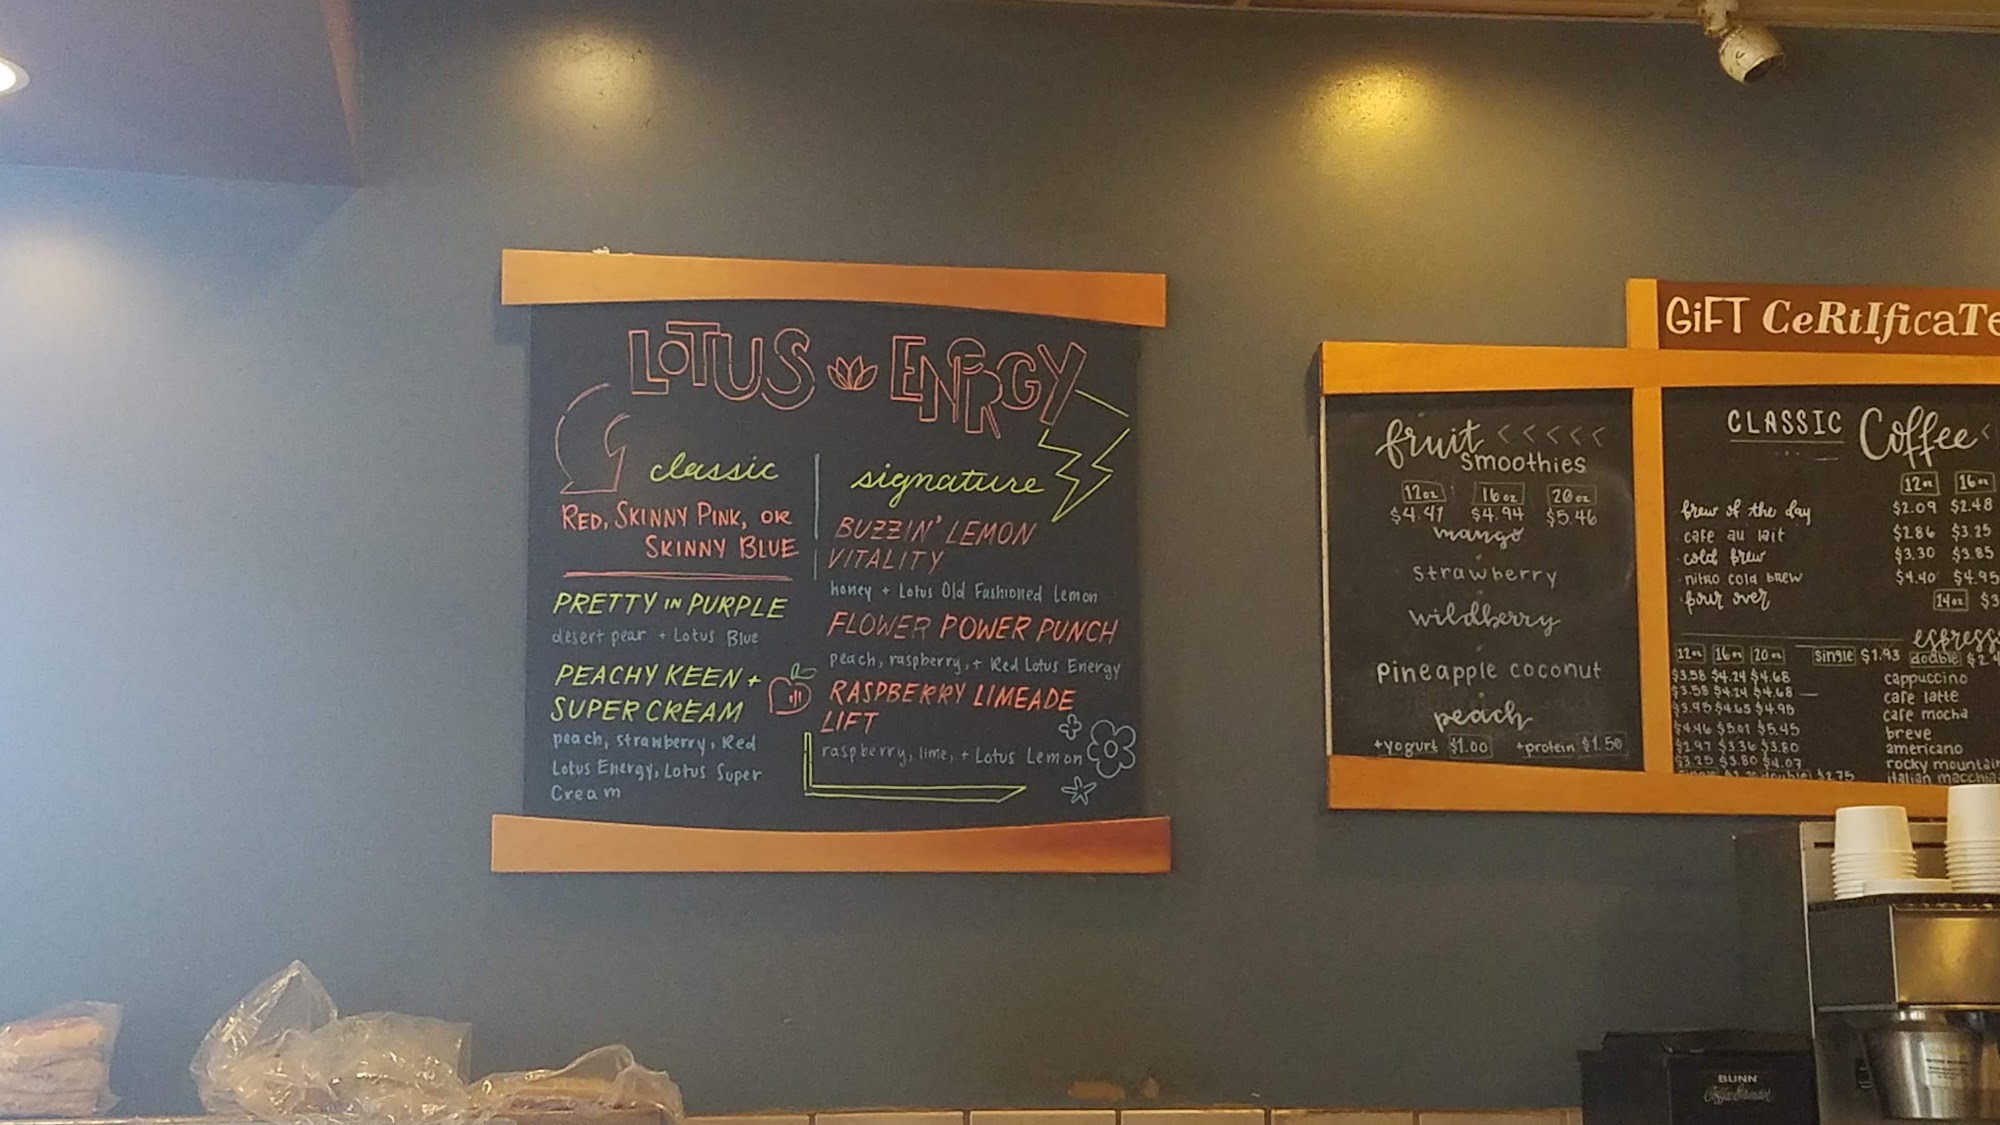 LOTUS ENERGY
classic
RED, SKINNY PINK, OR
SKINNY BLUE
PRETTY IN PURPLE
desert pear + Lotus Blue
PEACHY KEEN +
SUPER CREAM
peach, strawberry, Red
Lotus Energy, Lotus Super
Cream
signature
BUZZIN' LEMON
VITALITY
honey + Lotus Old Fashioned Lemon
FLOWER POWER PUNCH
peach, raspberry, + Red Lotus Energy
RASPBERRY LIMEADE
LIFT
raspberry, lime, + Lotus Lemon
fruit <<<<<
smoothies
12oz 16oz 20oz
$4.41 $4.94 $5.46
mango
strawberry
wildberry
pineapple coconut
peach
+yogurt $1.00 +protein $1.50
GiFT CeRtIficaTe
CLASSIC Coffee <
12oz 16oz
brew of the day $2.09 $2.48
cafe au lait $2.86 $3.25
cold brew $3.30 $3.85
nitro cold brew $4.40 $4.95
pour over 14oz $3
espresso
12oz 16oz 20oz single $1.93 double $2.4
$3.58 $4.24 $4.68 cappuccino
$3.58 $4.24 $4.68 cafe latte
$3.95 $4.65 $4.95 cafe mocha
$4.46 $5.01 $5.45 breve
$2.97 $3.36 $3.80 americano
$3.25 $3.80 $4.07 rocky mountain
double $2.75 italian macchia
BUNN